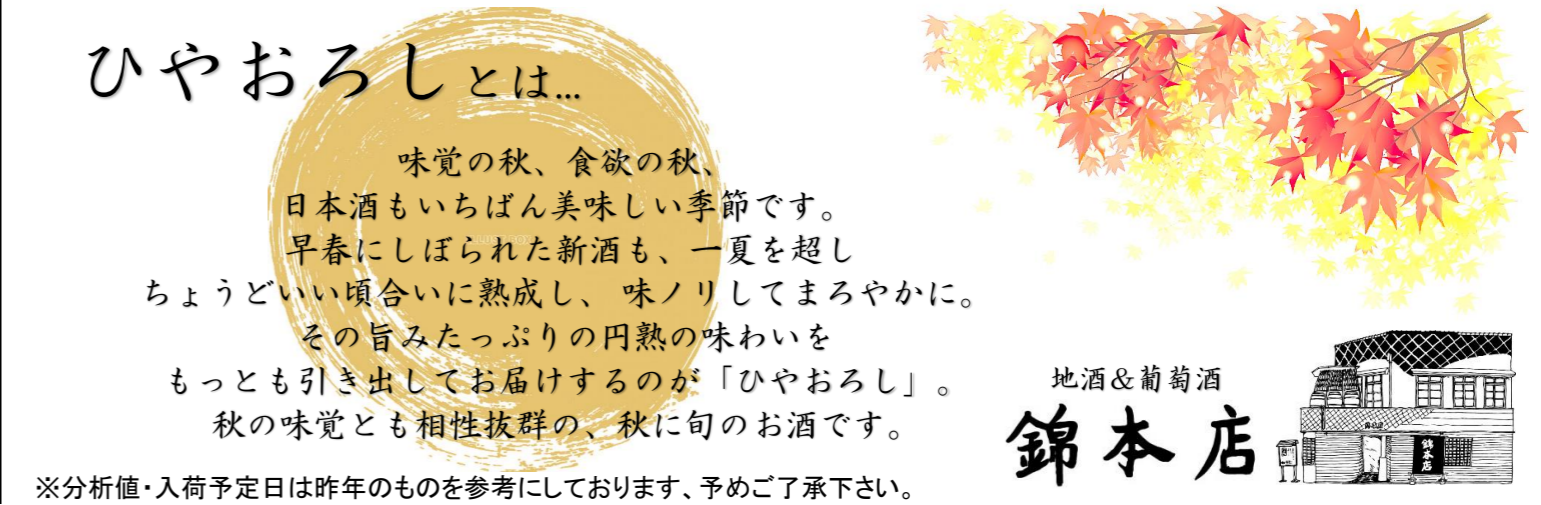 ひやおろしとは...
味覚の秋、食欲の秋、
日本酒もいちばん美味しい季節です。
早春にしぼられた新酒も、一夏を超し
ちょうどいい頃合いに熟成し、味ノリしてまろやかに。
その旨みたっぷりの円熟の味わいを
もっとも引き出してお届けするのが「ひやおろし」。
秋の味覚とも相性抜群の、秋に旬のお酒です。
※分析値・入荷予定日は昨年のものを参考にしております、予めご了承下さい。
地酒&葡萄酒
錦本店
錦本店